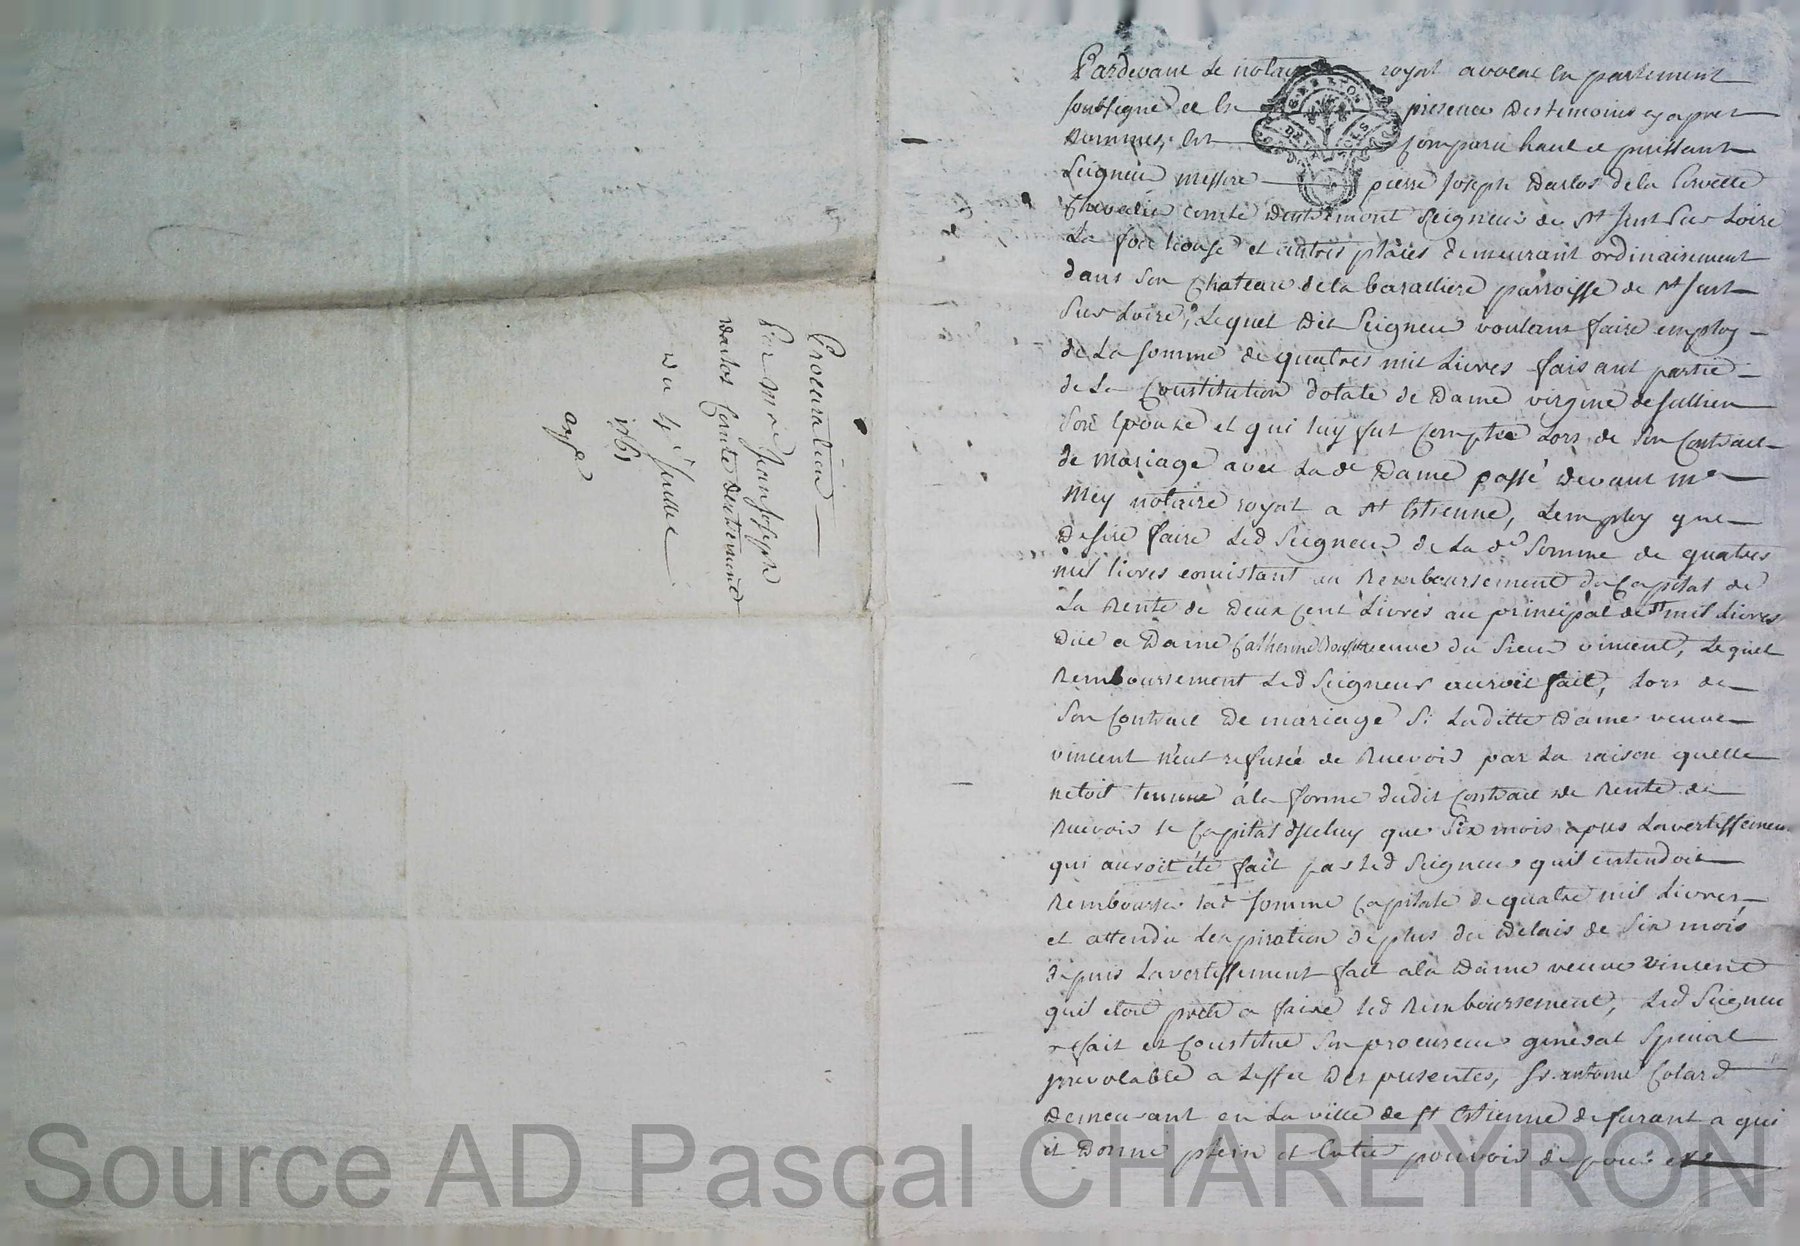 Procuration
Par Mre Jean Joseph
Darlos Comte Dentremont
Du 4e Juillet
1761
Pardevant Le notaire royal avocat en parlement
soussigné et En presence Des temoins cy apres
Nommes, Est Comparu haut et puissant
Seigneur Messire pierre Joseph Darlos dela
Chevalier comte Dentremont Seigneur de St Just Sur Loire
La fouillouse et autres places Demeurant ordinairement
dans Son Chateau dela baralliere parroisse de St Just
Sur Loire, Lequel Dit Seigneur voulant faire employ
de La somme de quatres mil Livres faisant partie
de La Constitution dotale de Dame virginie de Jullien
Son Epouse et qui luy fut Comptée Lors de Son Contract
de mariage avec Lade Dame passé Devant me
Mey notaire royal a St Estienne, Lemploy que
Desire faire Led Seigneur de Lade Somme de quatres
mil livres consistant au Remboursement du Capital de
La Rente de Deux Cent Livres au principal de 4 mil Livres
Düe a Dame Catherine veuve du Sieur vincent, Lequel
Remboursement Led Seigneur auroit fait, Lors de
Son Contract De mariage Si Laditte Dame veuve
vincent n'eut refusée de Recevoir par La raison quelle
netoit tenuue a la forme dudit Contract De Rente de
Recevoir le Capital dyceluy que Six mois apres Lavertissement
qui auroit été fait par Led Seigneur quil entendoit
Rembourser lad somme Capitale de quatre mil Livres,
et attendu Lexpiration de plus du Delais de Six mois
depuis Lavertissement fait ala Dame veuve vincent
quil etoit prest a faire led Remboursement, Led Seigneur
a fait et Constitué Son procureur general Special
jrrevocable a Leffet Des presentes, Sr. antoine Colard
Demeurant en La ville de St Estienne de furant a qui
il Donne plein et Entier pouvoir de pour et
Source AD Pascal CHAREYRON